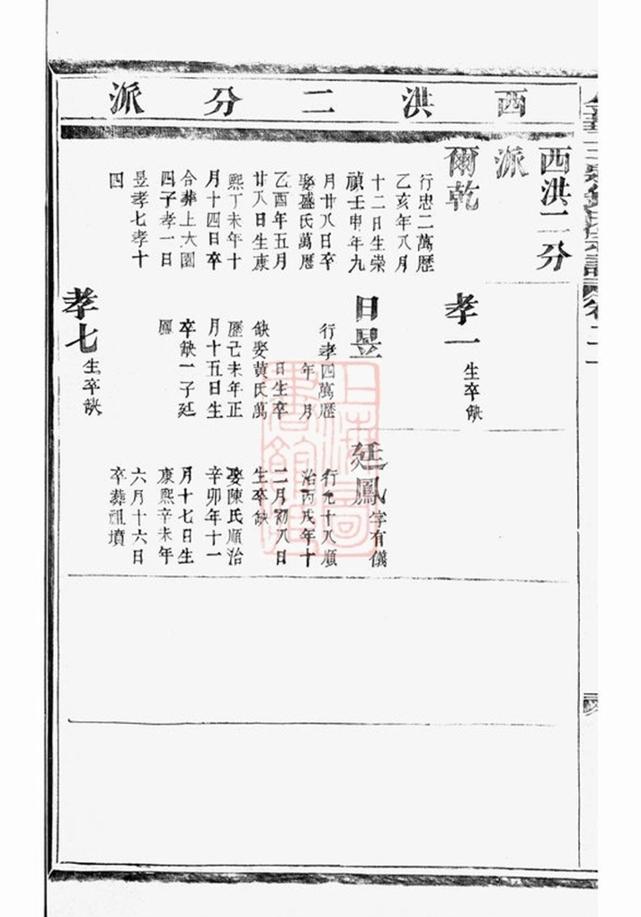 西洪二分派
西洪二分
派
爾乾
行忠二萬歷
乙亥年八月
十二日生崇
禎壬申年九
月廿八日卒
娶盛氏萬歷
乙酉年五月
廿八日生康
熙丁未年十
月十四日卒
合葬上大園
四子孝一日
昱孝七孝十
四
孝一
生卒缺
日昱
行孝四萬歷
年月
日生卒
缺娶黄氏萬
歷己未年正
月十五日生
卒缺一子廷
鳳
孝七
生卒缺
廷鳳
字有儀
行九十八順
治丙戌年十
二月初八日
生卒缺
娶陳氏順治
辛卯年十一
月十七日生
康熙辛未年
六月十六日
卒葬祖墳